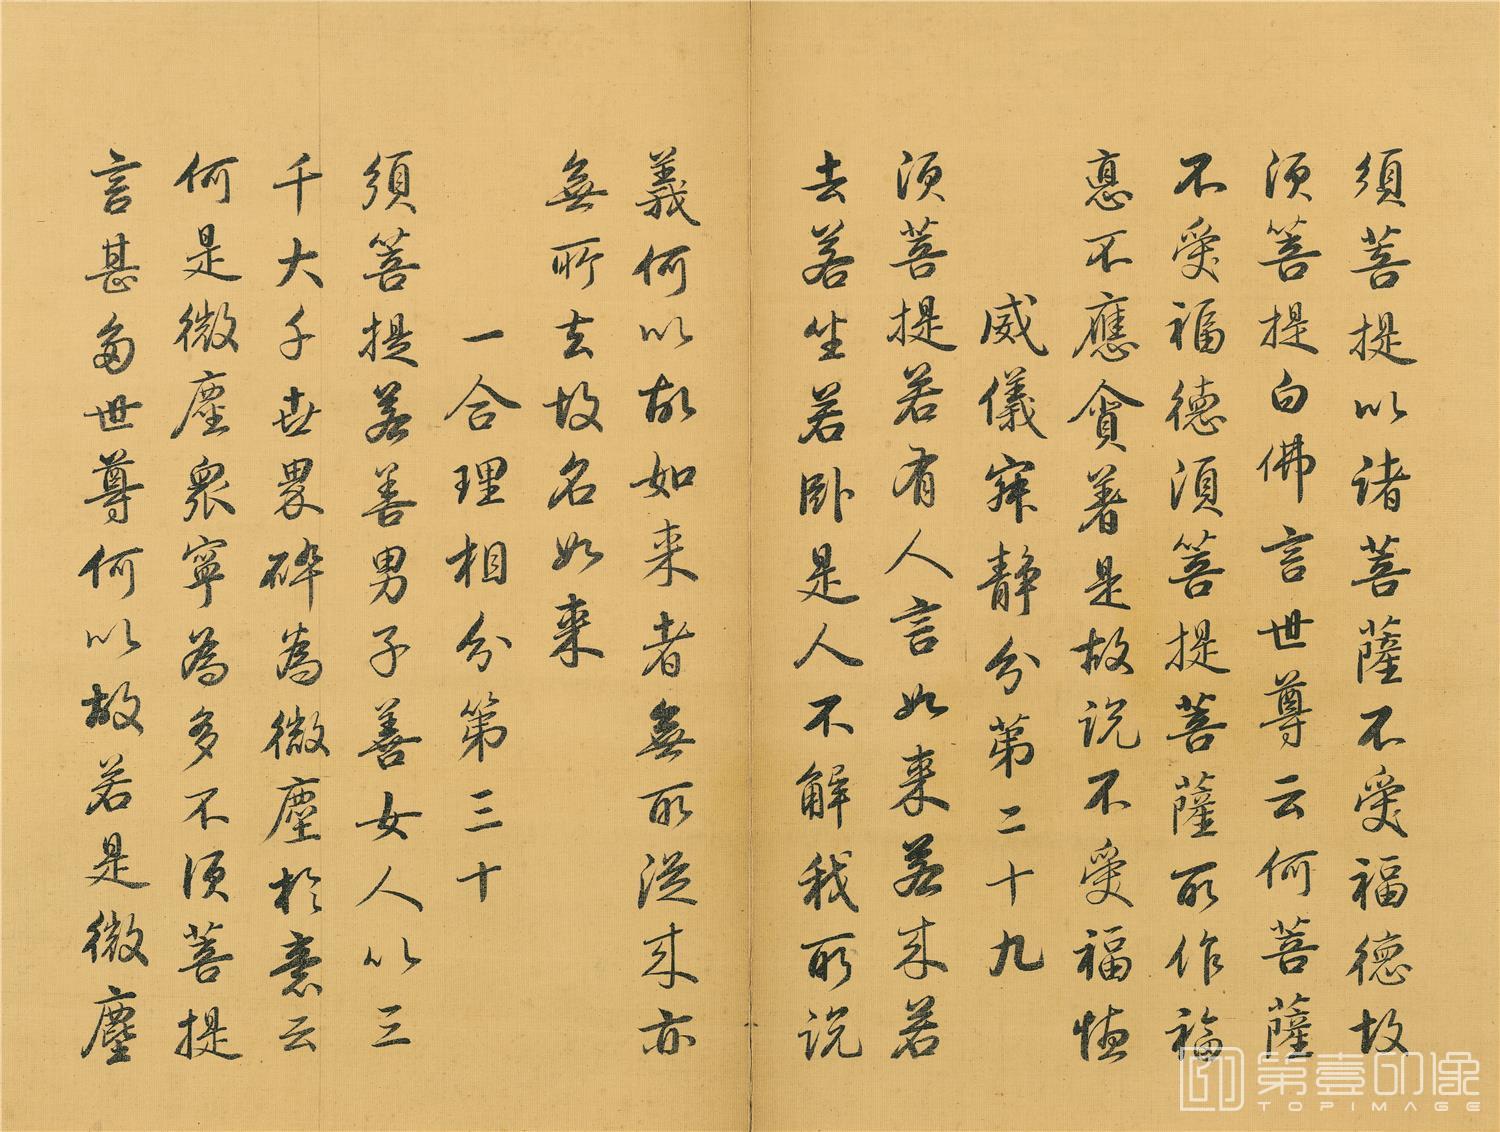 須菩提以諸菩薩不受福德故
須菩提白佛言世尊云何菩薩
不受福德須菩提菩薩所作福
悳不應貪著是故說不受福德
威儀寂静分第二十九
須菩提若有人言如来若来若
去若坐若臥是人不解我所說
義何以故如来者無所從来亦
無所去故名如来
一合理相分第三十
須菩提若善男子善女人以三
千大千世界碎為微塵於意云
何是微塵衆寧為多不須菩提
言甚多世尊何以故若是微塵
第壹印像
TOPIMAGE